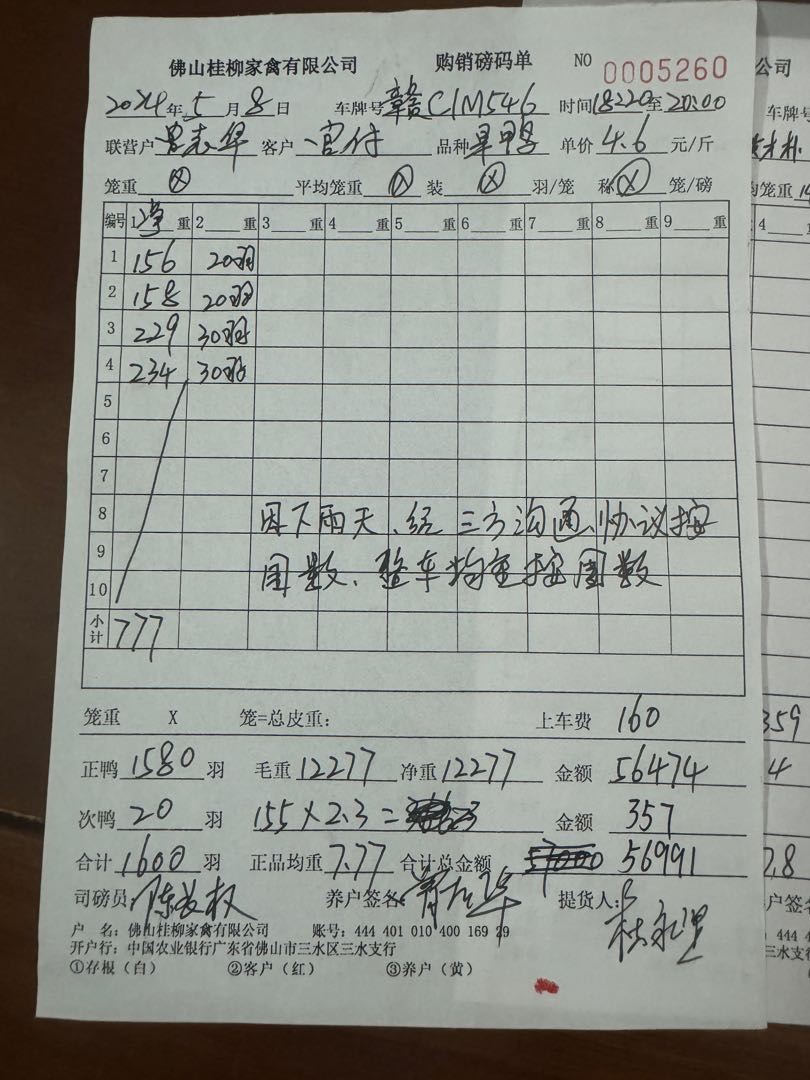 佛山桂柳家禽有限公司 购销磅码单 NO 0005260
2024年5月8日 车牌号 赣C1M546 时间 18:20至20:00
联营户 客户 官付 品种 旱鸭 单价 4.6 元/斤
笼重 ⓧ 平均笼重 ⓧ 装 ⓧ 羽/笼 称 ⓧ 笼/磅
编号 1净重 2重 3重 4重 5重 6重 7重 8重 9重
1 156 20羽
2 158 20羽
3 229 30羽
4 234 30羽
5
6
7
8 因下雨天、经三方沟通、协议按
9 围数、整车均重按围数
10
小计 777
笼重 X 笼=总皮重: 上车费 160
正鸭 1580 羽 毛重 12277 净重 12277 金额 56474
次鸭 20 羽 155×2.3= 金额 357
合计 1600 羽 正品均重 7.77 合计总金额 56991
司磅员: 养户签名: 提货人:
户 名: 佛山桂柳家禽有限公司 账号: 444 401 010 400 169 29
开户行: 中国农业银行广东省佛山市三水区三水支行
①存根(白) ②客户(红) ③养户(黄)
公司
车牌号
笼重
4 重
359
4
2.8
户签名
444 4
三水支行